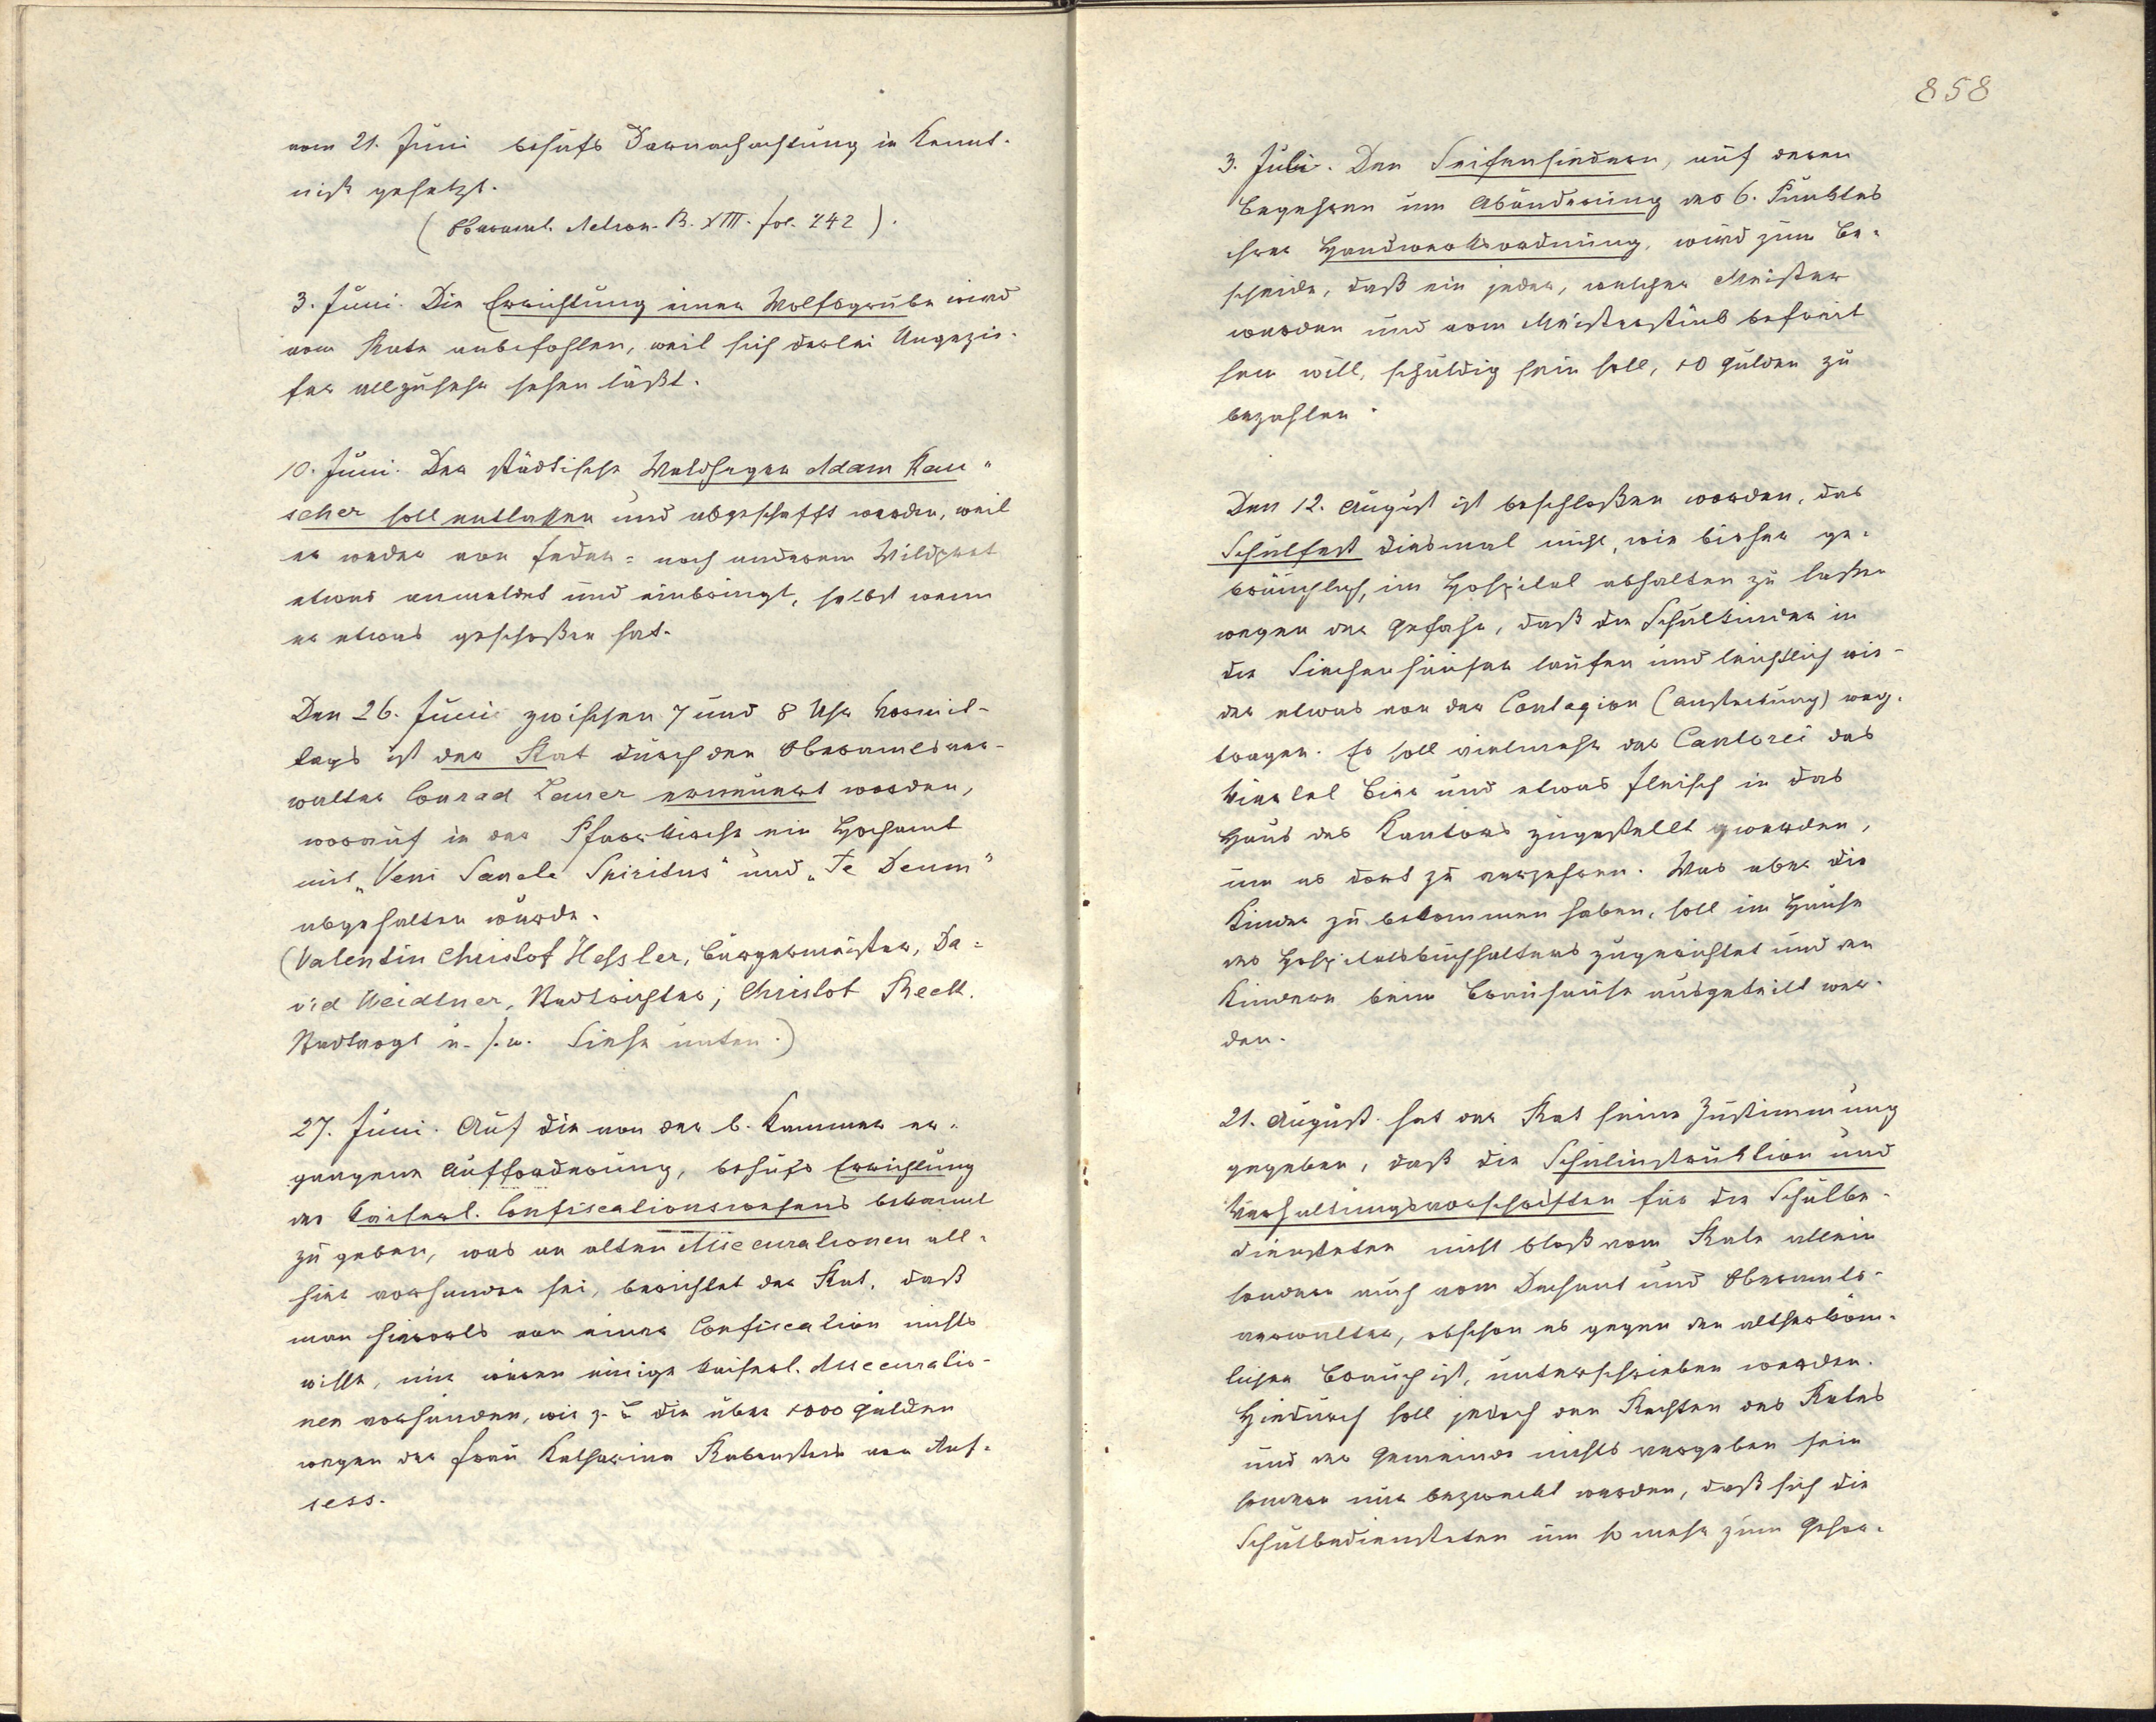 vom 21. Juni behufs Darnachachtung in Kennt-
niß gesetzt.
(Oberamt. Relron. B. XIII. fol. 242).
3. Juni. Die Errichtung einer Wolfsgrube wird
vom Rate anbefohlen, weil sich derlei Ungezie-
fer allzusehr sehen läßt.
10. Juni. Der städtische Waldheger Adam Rau-
scher soll entlassen und abgeschafft werden, weil
er weder von Feder- noch anderem Wildpret
etwas anmeldet und einbringt, selbst wenn
er etwas geschoßen hat.
Den 26. Juni zwischen 7 und 8 Uhr Vormit-
tags ist der Rat durch den Oberamtsver-
walter Conrad Lauer erneuert worden,
worauf in der Pfarrkirche ein Hochamt
mit „Veni Sancte Spiritus“ und „Te Deum“
abgehalten wurde.
(Valentin Christof Hessler, Bürgermeister, Da-
vid Weidtner, Stadtrichter; Christof Reck.
Stadtvogt u. s. w. Siehe unten.)
27. Juni. Auf die von der b. Kammer er-
gangene Aufforderung, behufs Errichtung
des Kaiserl. Confiscationswesens bekannt
zu geben, was an alten Assecurationen all-
hier vorhanden sei, berichtet der Rat, daß
man hierorts von einer Confiscation nichts
wisse, nur wären einige kaiserl. Assecuratio-
nen vorhanden, wie z. B die über 1000 Gulden
wegen der Frau Katharina Rabenstein von Auf-
sess.
858
3. Juli. Den Seifensiedern, auf deren
Begehren um Abänderung des 6. Punktes
ihrer Handwerksordnung, wird zum Be-
scheide, daß ein jeder, welcher Meister
werden und vom Meisterstück befreit
sein will, schuldig sein soll, 10 Gulden zu
bezahlen.
Den 12. August ist beschloßen worden, das
Schulfest diesmal nicht, wie bisher ge-
bräuchlich, im Hospital abhalten zu laßen
wegen der Gefahr, daß die Schulkinder in
die Siechenhäuser laufen und leichtlich wie-
der etwas von der Contagion (Ansteckung) weg-
tragen. Es soll vielmehr der Cantorei das
Viertel Bier und etwas Fleisch in das
Haus des Kantors zugestellt werden,
um es dort zu verzehren. Was aber die
Kinder zu bekommen haben, soll im Hause
des Hospitalsbuchhalters zugerichtet und den
Kindern beim Brauhause ausgeteilt wer-
den.
21. August hat der Rat seine Zustimmung
gegeben, daß die Schulinstruktion und
Verhaltungsvorschriften für die Schulbe-
diensteten nicht bloß vom Rate allein
sondern auch vom Dechant und Oberamts-
verwalter, obschon es gegen den altherköm-
lichen Brauch ist, unterschrieben werden.
Hiedurch soll jedoch den Rechten des Rates
und der Gemeinde nichts vergeben sein
sondern nur bezweckt werden, daß sich die
Schulbediensteten um so mehr zum Gehor-